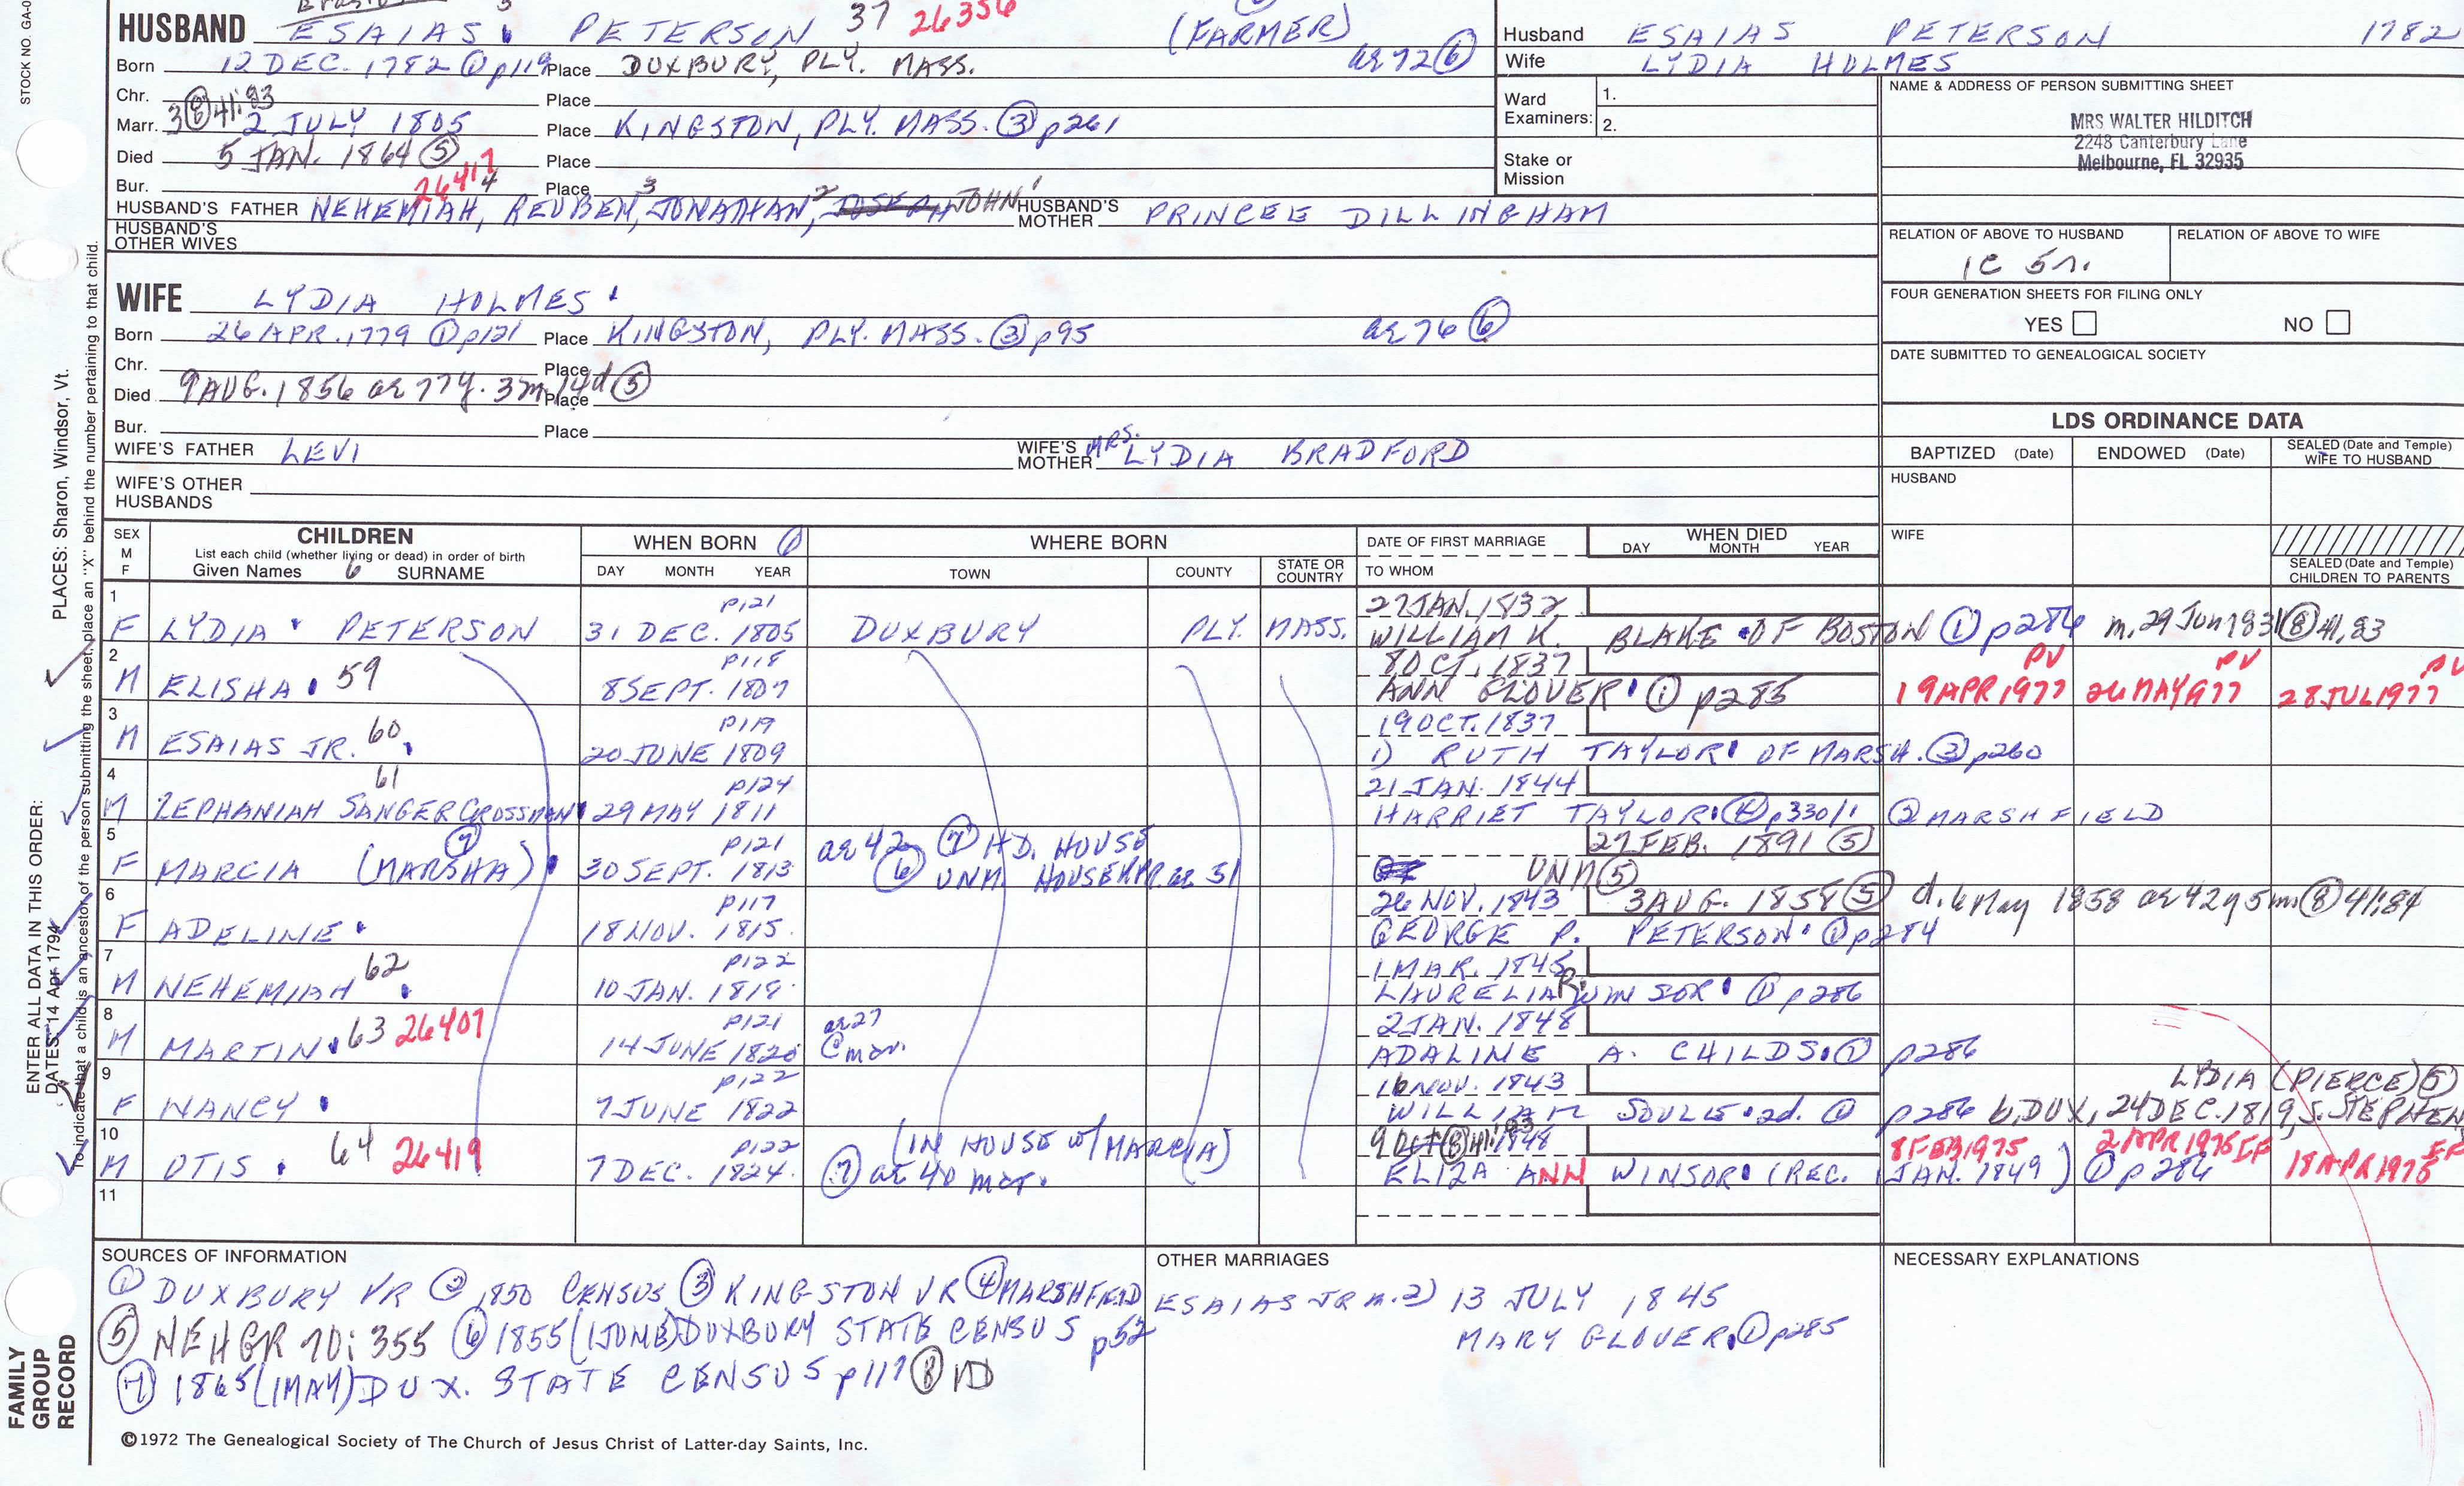 STOCK NO. GA-0
HUSBAND ESAIAS PETERSON 37 26356 (FARMER)
Born 12 DEC. 1782 ① p119 Place DUXBURY, PLY. MASS. ae 72 ⑥
Chr. Place
Marr. 3 ⑧ 41:83 2 JULY 1805 Place KINGSTON, PLY. MASS. ③ p261
Died 5 JAN. 1864 ⑤ Place
Bur. Place
26417
HUSBAND'S FATHER NEHEMIAH,4 REUBEN,3 JONATHAN,2 JOHN1 HUSBAND'S MOTHER PRINCEE DILLINGHAM
HUSBAND'S OTHER WIVES
Husband ESAIAS PETERSON 1782
Wife LYDIA HOLMES
Ward Examiners: 1.
2.
Stake or Mission
NAME & ADDRESS OF PERSON SUBMITTING SHEET
MRS WALTER HILDITCH
2248 Canterbury Lane
Melbourne, FL 32935
RELATION OF ABOVE TO HUSBAND RELATION OF ABOVE TO WIFE
1C 5r.
FOUR GENERATION SHEETS FOR FILING ONLY
YES NO
DATE SUBMITTED TO GENEALOGICAL SOCIETY
WIFE LYDIA HOLMES
Born 26 APR. 1779 ① p121 Place KINGSTON, PLY. MASS. ③ p95 ae 76 ⑥
Chr. Place
Died 9 AUG. 1856 ae 77y. 3m. 14d ⑤ Place
Bur. Place
WIFE'S FATHER LEVI WIFE'S MOTHER MRS. LYDIA BRADFORD
WIFE'S OTHER HUSBANDS
LDS ORDINANCE DATA
BAPTIZED (Date) ENDOWED (Date) SEALED (Date and Temple) WIFE TO HUSBAND
HUSBAND
WIFE
SEALED (Date and Temple) CHILDREN TO PARENTS
SEX M F CHILDREN
List each child (whether living or dead) in order of birth
Given Names 6 SURNAME
WHEN BORN ①
DAY MONTH YEAR
WHERE BORN
TOWN COUNTY STATE OR COUNTRY
DATE OF FIRST MARRIAGE
TO WHOM
WHEN DIED
DAY MONTH YEAR
1 p121 27 JAN. 1832
F LYDIA PETERSON 31 DEC. 1805 DUXBURY PLY. MASS. WILLIAM K. BLAKE OF BOSTON ① p286 m. 29 Jun 1831 ⑧ 41,83
2 p118 8 OCT. 1837 PV PV PV
M ELISHA 59 8 SEPT. 1807 ANN GLOVER ① p285 19 APR 1977 26 MAY 1977 28 JUL 1977
3 p119 19 OCT. 1837
M ESAIAS JR. 60 20 JUNE 1809 1) RUTH TAYLOR OF MARSH. ③ p260
4 61 p124 21 JAN. 1844
M ZEPHANIAH SANGER CROSSMAN 29 MAY 1811 HARRIET TAYLOR ④ p330/1 ② MARSHFIELD
5 ⑦ p121 ae 42 ⑦ HD. HOUSE 27 FEB. 1891 ⑤
F MARCIA (MARSHA) 30 SEPT. 1813 ⑥ UNM. HOUSEKPR. ae 51 UNM ⑤
6 p117 26 NOV. 1843 3 AUG. 1858 ⑤ d. 6 May 1858 ae 42y 5m. ⑧ 41:84
F ADELINE 18 NOV. 1815 GEORGE P. PETERSON ① p284
7 62 p122 1 MAR. 1845
M NEHEMIAH 10 JAN. 1819 LAURELIA R. WINSOR ① p286
8 p121 ae 27 2 JAN. 1848
M MARTIN 63 26407 14 JUNE 1820 @ mar. ADALINE A. CHILDS ① p286
9 p122 16 NOV. 1843 LYDIA (PIERCE) ⑤
F NANCY 7 JUNE 1822 WILLIAM SOULE 2d. ① p286 b. DUX, 24 DEC. 1819, s. STEPHEN
10 p122 (IN HOUSE w/ MARCIA) 9 Oct ⑧ 41:83 1848 8 FEB 1975 2 APR 1975 18 APR 1975
M OTIS 64 26419 7 DEC. 1824 ⑦ ae 40 mar. ELIZA ANN WINSOR (REC. JAN. 1849) ① p286
11
SOURCES OF INFORMATION
① DUXBURY VR ② 1850 CENSUS ③ KINGSTON VR ④ MARSHFIELD
⑤ NEHGR 70:355 ⑥ 1855 (1 JUNE) DUXBURY STATE CENSUS p52
⑦ 1865 (1 MAY) DUX. STATE CENSUS p117 ⑧ MD
OTHER MARRIAGES
ESAIAS JR m. 2) 13 JULY 1845
MARY GLOVER ① p285
NECESSARY EXPLANATIONS
©1972 The Genealogical Society of The Church of Jesus Christ of Latter-day Saints, Inc.
FAMILY GROUP RECORD
ENTER ALL DATA IN THIS ORDER: PLACES: Sharon, Windsor, Vt.
DATES: 14 Apr 1794
To indicate that a child is an ancestor of the person submitting the sheet, place an "X" behind the number pertaining to that child.